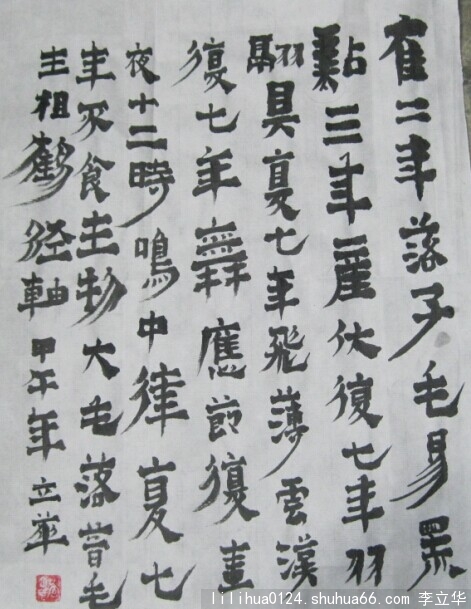 隺二年落子毛易黑
點三年產伏復七年羽
翮具复七年飛薄雲漢
復七年舞應節復晝
夜十二時鳴中律复七
年不食生物大毛落茸毛
生相鶴經軸甲午年立華
lilihua0124.shuhua66.com 李立华